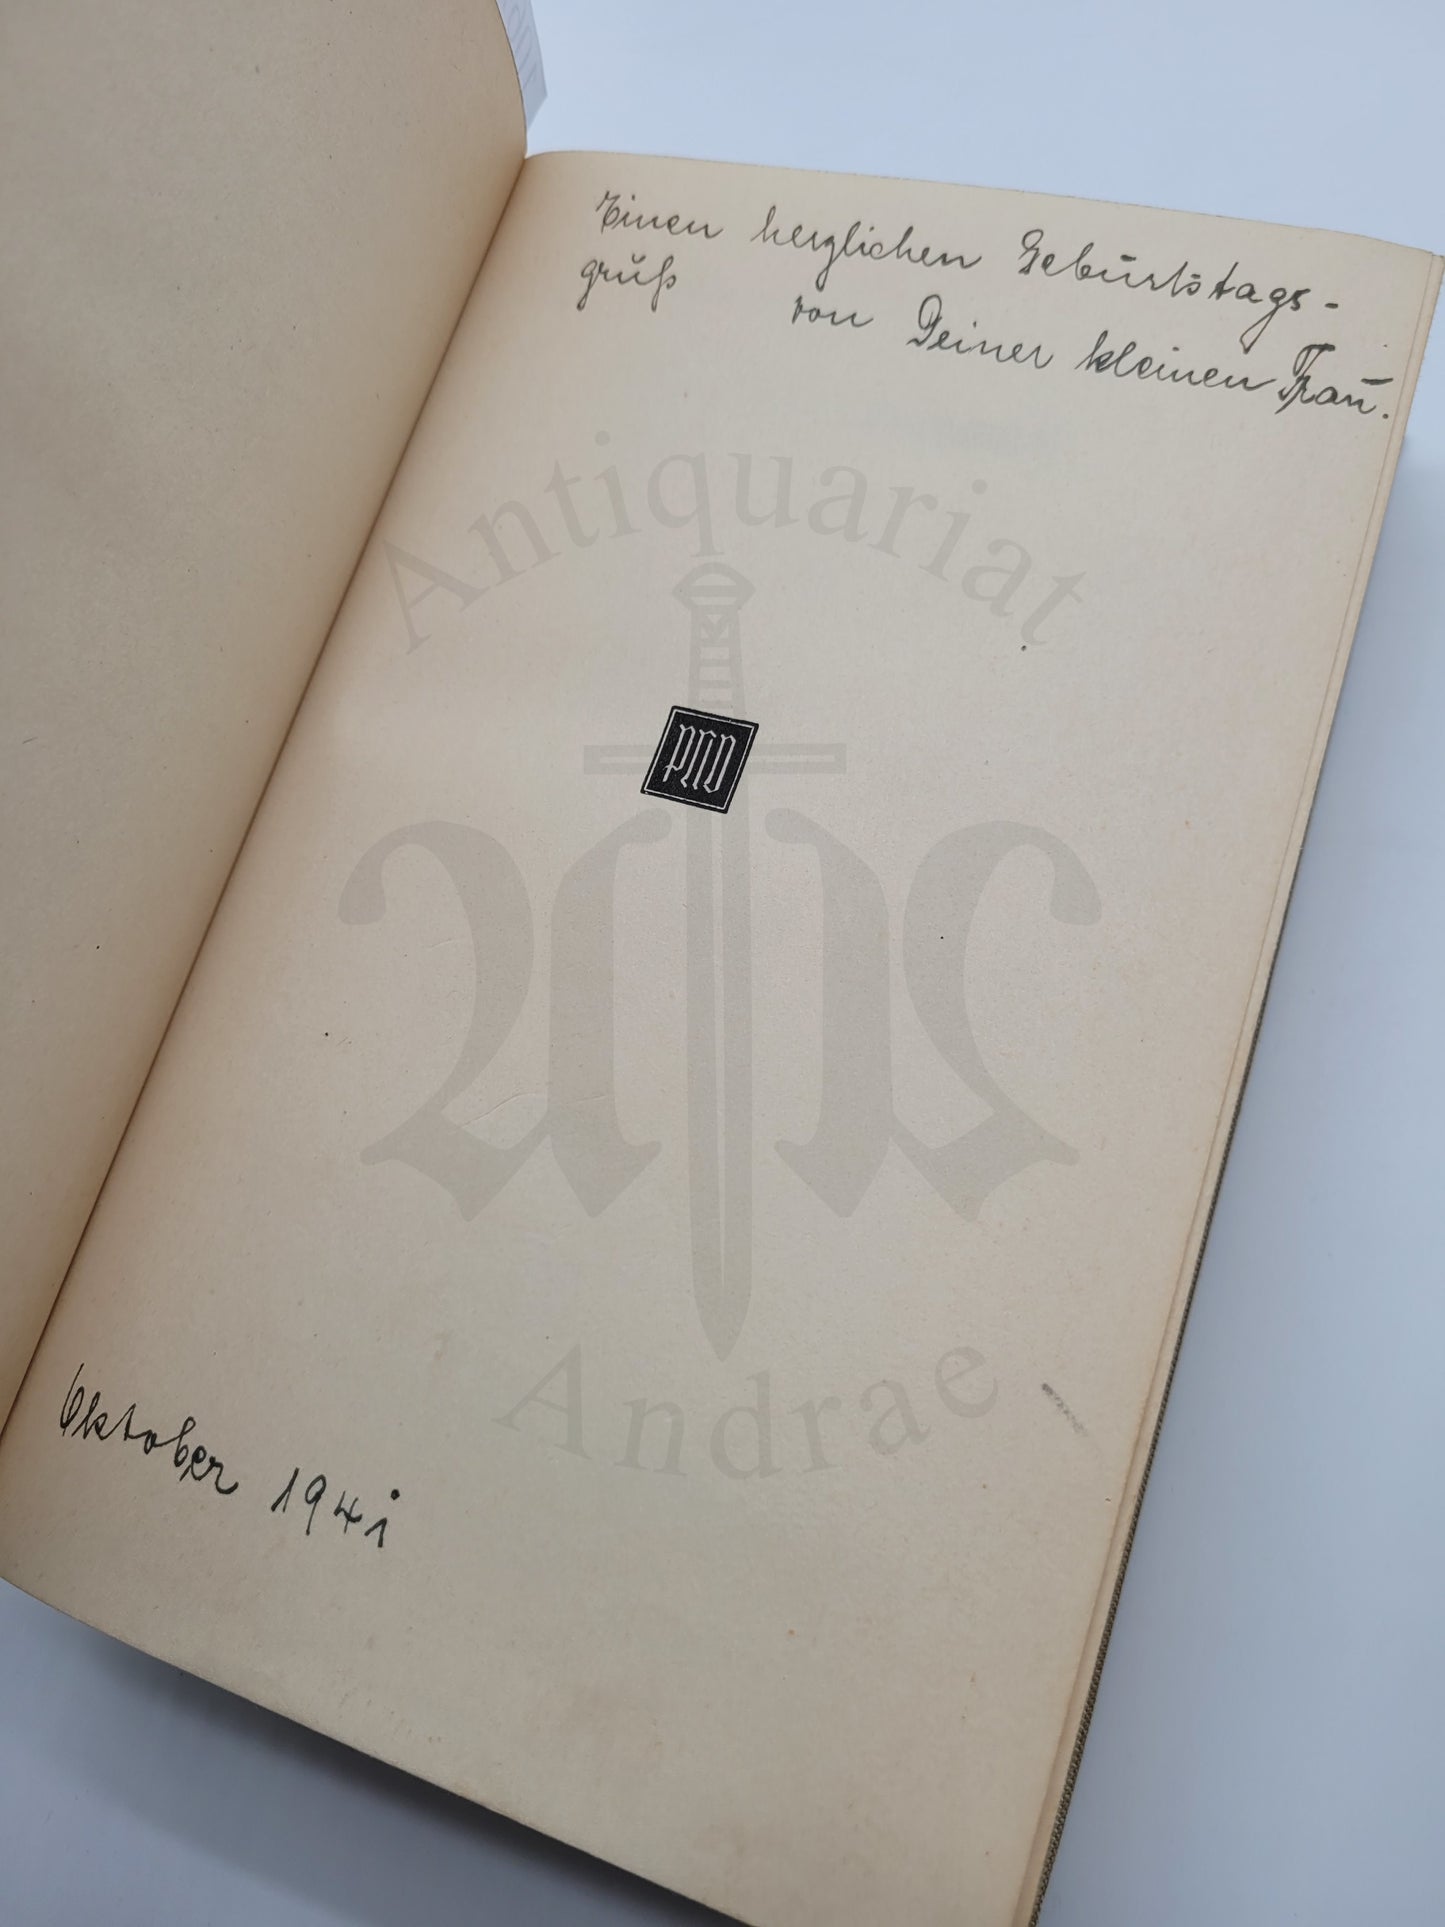 Einen herzlichen Geburtstags-
gruß von Deiner kleinen Frau.
Antiquariat
PND
Andrae
Oktober 1941